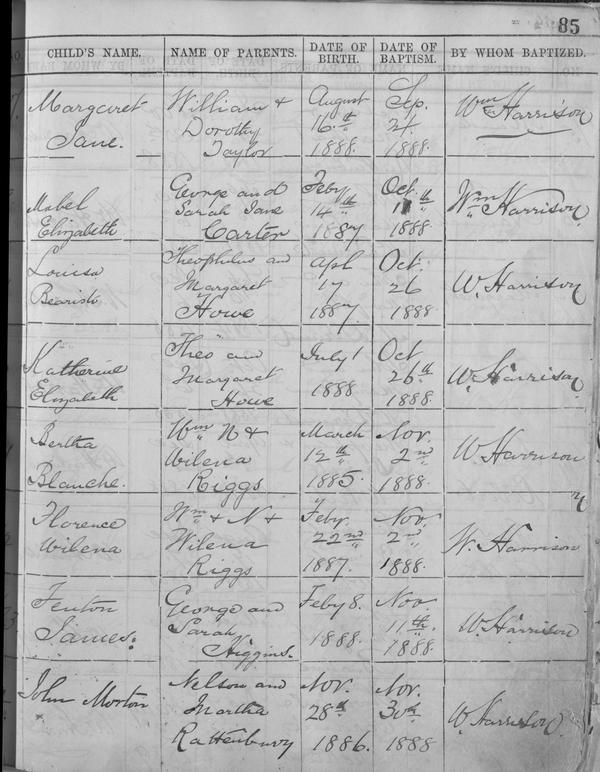 85
CHILD'S NAME. NAME OF PARENTS. DATE OF BIRTH. DATE OF BAPTISM. BY WHOM BAPTIZED.
Margaret William & August Sep. Wm Harrison
Jane. Dorothy 16th 24
Taylor 1888. 1888.
Mabel George and Feby Oct. Wm Harrison
Elizabeth Sarah Jane 14th 11th
Carter 1887 1888
Louisa Theophilus and Apl Oct. W. Harrison
Bearisto Margaret 17 26
Howe 1887. 1888
Katherine Theo and July 1 Oct W. Harrison
Elizabeth Margaret 1888 26th
Howe 1888.
Bertha Wm N & March Nov. W Harrison
Blanche. Wilena 12th 2nd
Riggs 1885. 1888.
Florence Wm & N & Feby. Nov. W. Harrison
Wilena Wilena 22nd 2nd
Riggs 1887. 1888.
Fenton George and Feby 8. Nov. W. Harrison
James. Sarah 1888. 11th.
Higgins. 1888
John Morton Nelson and Nov. Nov. W. Harrison
Martha 28th 30th
Rattenbury 1886. 1888